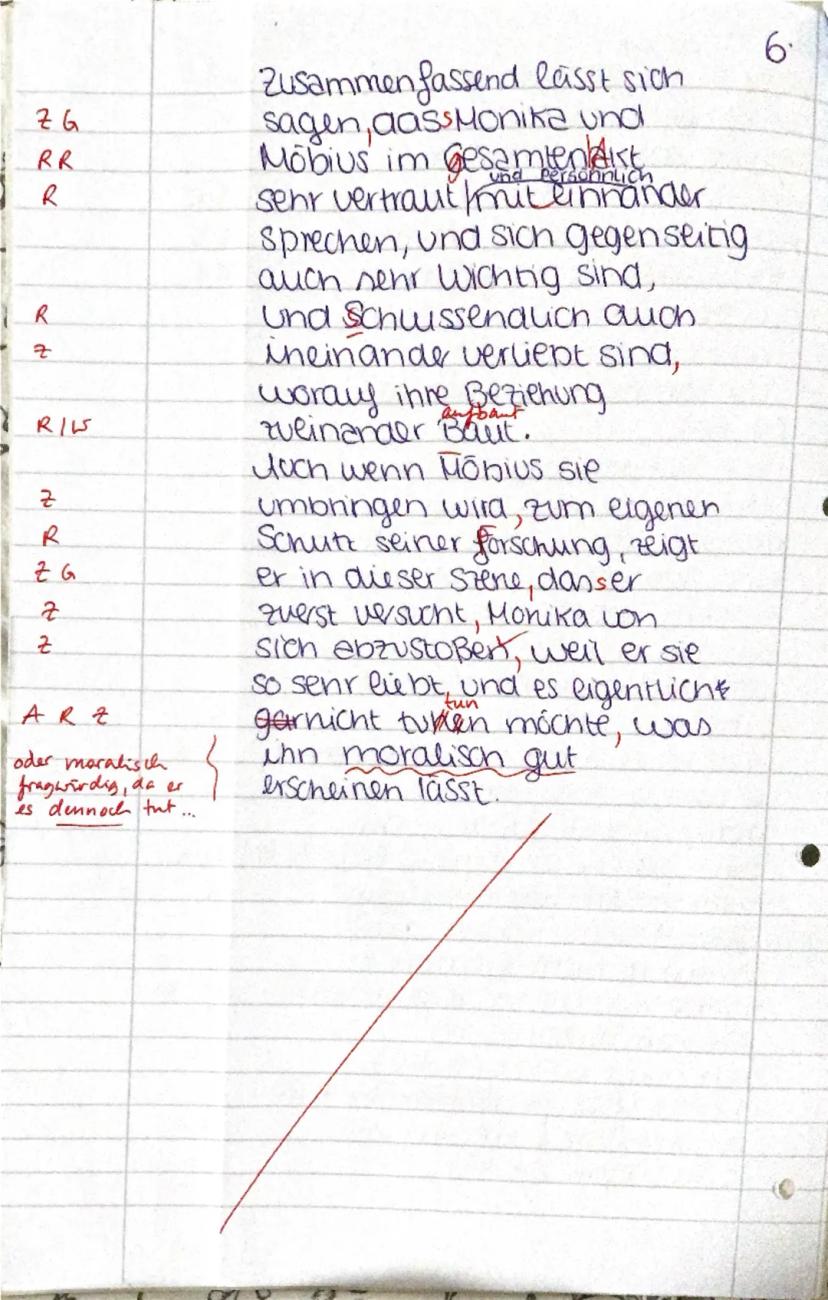 6.
Zusammenfassend lässt sich
Z G sagen, dass Monika und
R R Möbius im gesamten Akt
und persönlich
R sehr vertraut miteinnander
sprechen, und sich gegenseitig
auch sehr wichtig sind,
R und Schlussendlich auch
Z ineinander verliebt sind,
worauf ihre Beziehung
aufbaut
R/W zueinander Baut.
Auch wenn Möbius sie
Z umbringen wird, zum eigenen
R Schutz seiner Forschung, zeigt
Z G er in dieser Szene, dass er
Z zuerst versucht, Monika von
Z sich abzustoßen, weil er sie
so sehr liebt, und es eigentlich
tun
A R Z garnicht möchte, was
oder moralisch ihn moralisch gut
fragwürdig, da er erscheinen lässt.
es dennoch tut...